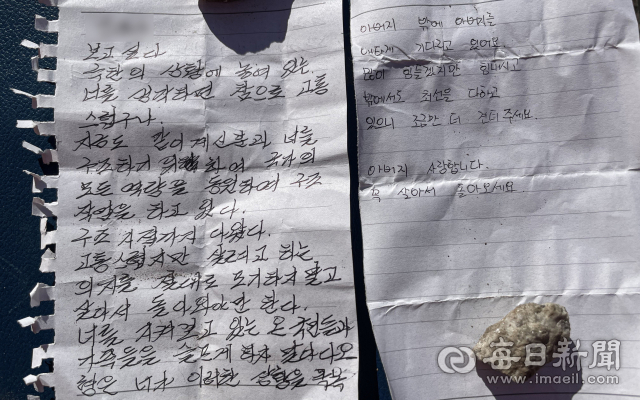 보고 싶다
극한의 상황에 놓여 있는
너를 생각하면 참으로 고통
스럽구나.
지금도 같이 계신분과 너를
구조하기 위해 하여 국가의
모든 역량을 동원하여 구조
작업을 하고 있다.
구조 지점까지 다왔다.
고통스럽지만 살려고 하는
의지를 절대로 포기하지 말고
살아서 돌아와야만 한다.
너를 지켜보고 있는 온 국민들과
가족들을 슬프게 하지 말아다오
형은 너가 이러한 상황을 극복
아버지 밖에 아버지를
애타게 기다리고 있어요
많이 힘들겠지만 힘내시고
밖에서도 최선을 다하고
있으니 조금만 더 견뎌주세요.
아버지 사랑합니다.
꼭 살아서 돌아오세요
每日新聞
www.imaeil.com